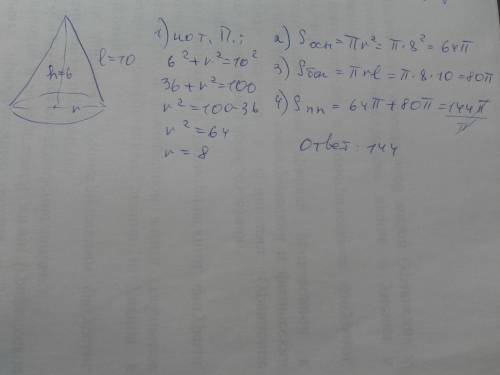 h=6
l=10
r
1) по т. П.:
6² + r² = 10²
36 + r² = 100
r² = 100-36
r² = 64
r = 8
2) Sосн = πr² = π·8² = 64π
3) Sбок = πrl = π·8·10 = 80π
4) Sпп = 64π + 80π = 144π
π
Ответ: 144